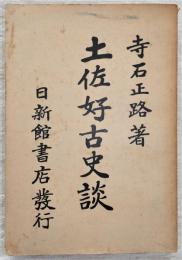 寺石正路著
土佐好古史談
日新館書店發行